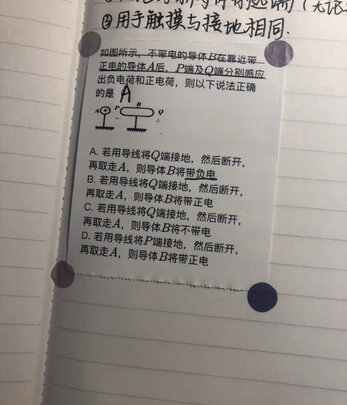 ③用手触摸与接地相同.
如图所示，不带电的导体B在靠近带
正电的导体A后，P端及Q端分别感应
出负电荷和正电荷，则以下说法正确
的是 A
A P B Q
A. 若用导线将Q端接地，然后断开，
再取走A，则导体B将带负电
B. 若用导线将Q端接地，然后断开，
再取走A，则导体B将带正电
C. 若用导线将Q端接地，然后断开，
再取走A，则导体B将不带电
D. 若用导线将P端接地，然后断开，
再取走A，则导体B将带正电